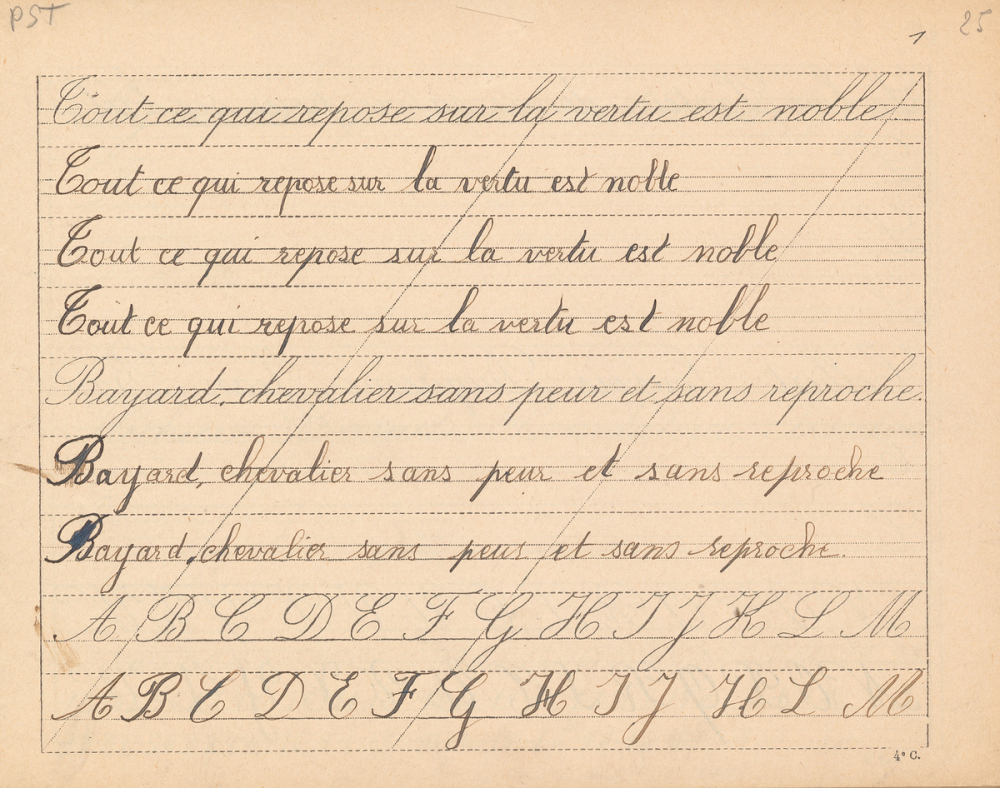 PST
25
1
Tout ce qui repose sur la vertu est noble.
Tout ce qui repose sur la vertu est noble
Tout ce qui repose sur la vertu est noble
Tout ce qui repose sur la vertu est noble
Bayard, chevalier sans peur et sans reproche.
Bayard, chevalier sans peur et sans reproche
Bayard, chevalier sans peur et sans reproche.
A B C D E F G H I J K L M
A B C D E F G H I J H L M
4e C.